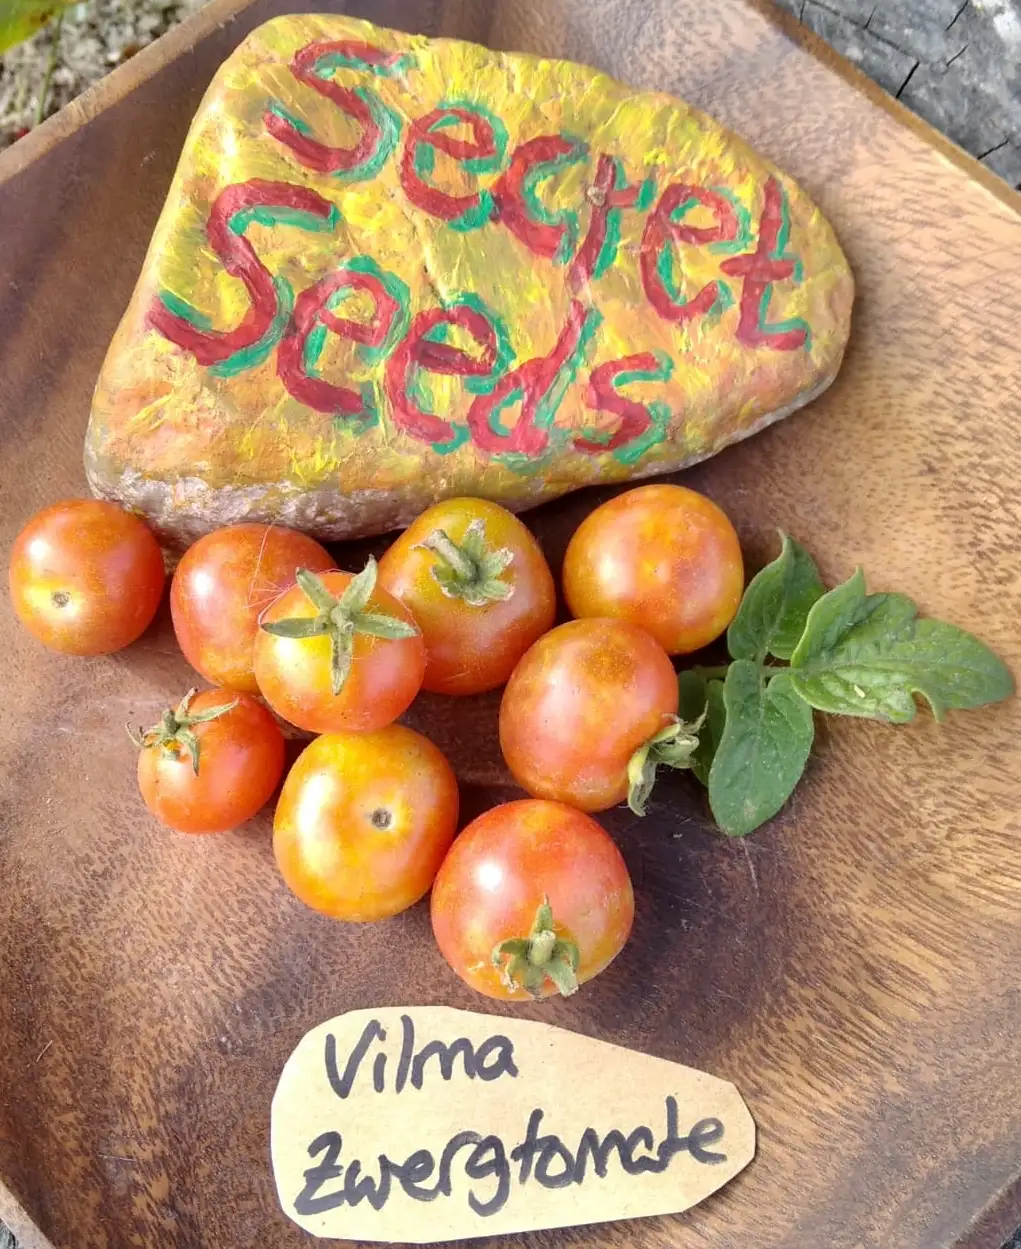 Secret
Seeds
Vilma
Zwergtomate